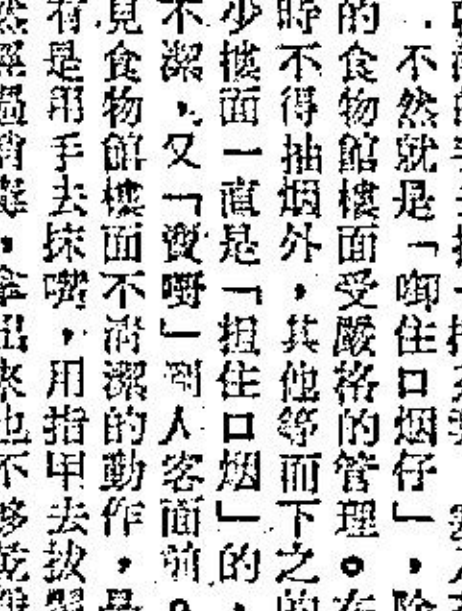 不然就是「啣住口烟仔」，
的食物館樓面受嚴格的管理。在
時不得抽烟外，其他等而下之的
少樓面一直是「担住口烟」的，
不潔，又「嘢」到人客面前。
見食物館樓面不清潔的動作，是
有是用手去抹嘴，用指甲去拔
然經過會，拿出來也不够乾